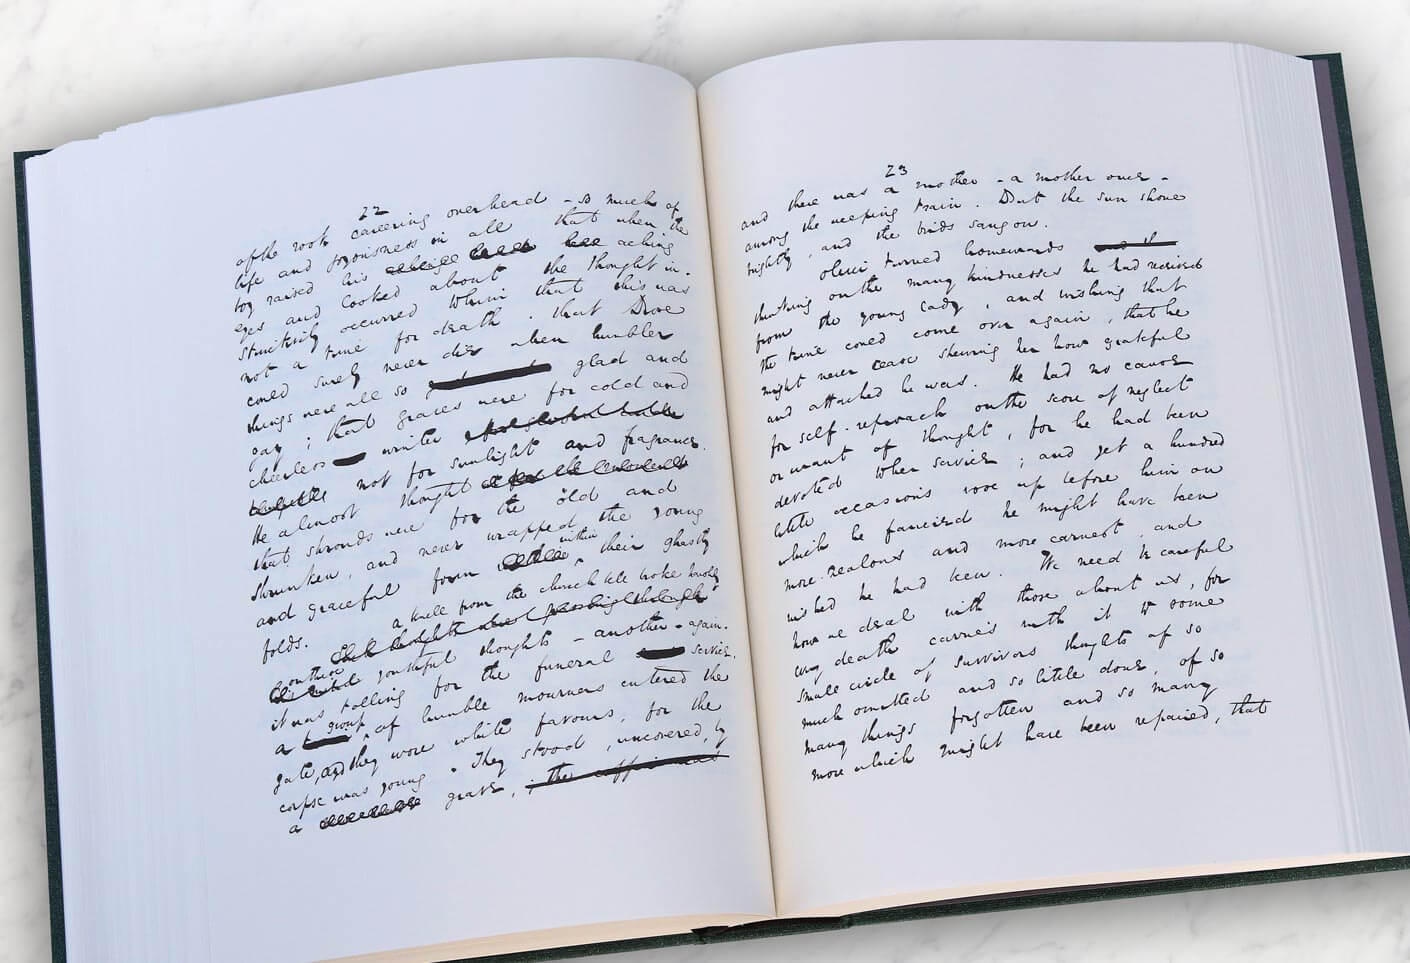 22
of the rook careering overhead - so much of
life and joyousness in all that when the
boy raised his aching
eyes and looked about the thought in.
stinctively occurred to him that this was
not a time for death . that Rose
could surely never die when humbler
things were all so glad and
gay ; that graves were for cold and
cheerless winter
not for sunlight and fragrance.
He almost thought
that shrouds were for the old and
shrunken, and never wrapped the young
and graceful form within their ghastly
folds.
a knell from the church bell broke harshly
on these youthful thoughts - another - again.
it was tolling for the funeral service.
a group of humble mourners entered the
gate, and they wore white favours, for the
corpse was young . They stood , uncovered, by
a grave, the coffin was
23
and there was a mother - a mother once -
among the weeping train . But the sun shone
brightly , and the birds sang on.
Oliver turned homewards
thinking on the many kindnesses he had received
from the young lady , and wishing that
the time could come over again , that he
might never cease shewing her how grateful
and attached he was. He had no cause
for self-reproach on the score of neglect
or want of thought , for he had been
devoted to her service ; and yet a hundred
little occasions rose up before him on
which he fancied he might have been
more zealous and more earnest and
wished he had been . We need be careful
how we deal with those about us , for
every death carries with it to some
small circle of survivors thoughts of so
much omitted and so little done, of so
many things forgotten and so many
more which might have been repaired, that